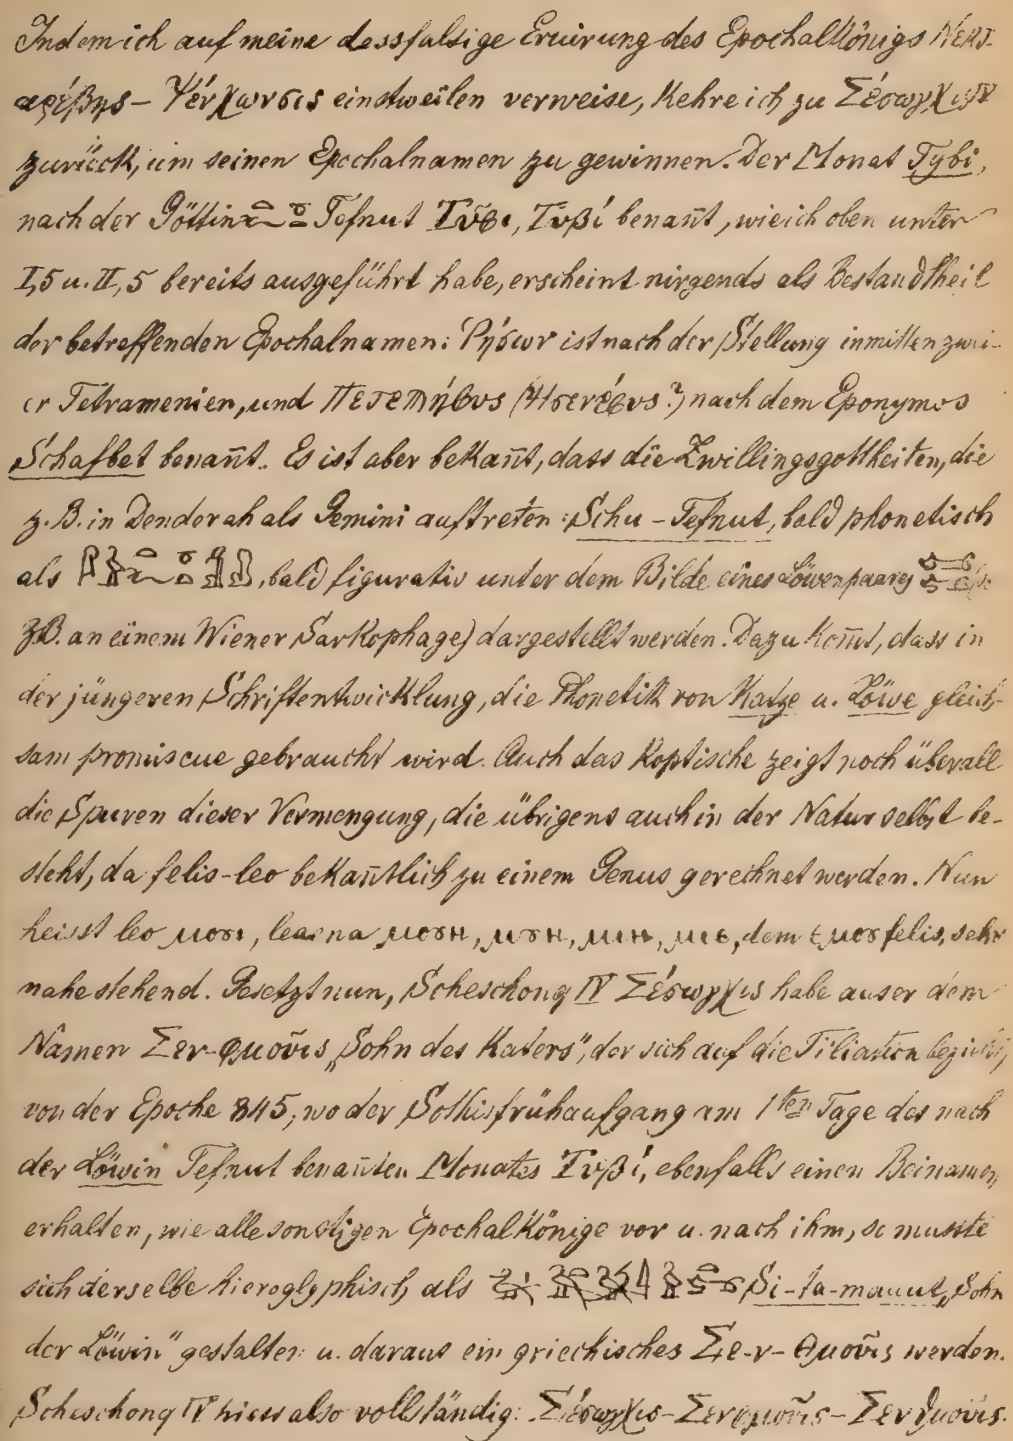 Indem ich auf meine dessfalsige Eruirung des Epochalkönigs Νεκτ-
αρέβης – Ψένχωνσις einstweilen verweise, kehre ich zu Σέσωγχις IV
zurück, um seinen Epochalnamen zu gewinnen. Der Monat Tybi,
nach der Göttin Tefnut Τῦβι, Τυβί benañt, wie ich oben unter
I,5 u. II,5 bereits ausgeführt habe, erscheint nirgends als Bestandtheil
der betreffenden Epochalnamen: Ῥήσωr ist nach der Stellung inmitten zwei-
er Tetramenien, und (Ψσενέφυs?) nach dem Eponymos
Schafbet benañt. Es ist aber bekañt, dass die Zwillingsgottheiten, die
z. B. in Denderah als Gemini auftreten: Schu – Tefnut, bald phonetisch
als , bald figurativ unter dem Bilde eines Löwenpaares (so
zB. an einem Wiener Sarkophage) dargestellt werden. Dazu kom̃t, dass in
der jüngeren Schriftentwicklung, die Phonetik von Katze u. Löwe gleich-
sam promiscue gebraucht wird. Auch das Koptische zeigt noch überall
die Spuren dieser Vermengung, die übrigens auch in der Natur selbst be-
steht, da felis-leo bekañtlich zu einem Genus gerechnet werden. Nun
heisst leo ⲙⲟⲩⲓ, leaena ⲙⲟⲩⲏ, ⲙⲩⲏ, ⲙⲓⲏ, ⲙⲓⲉ, dem ⲉⲙⲟⲩ felis, sehr
nahe stehend. Gesetzt nun, Scheschonq IV Σέσωγχις habe auser dem
Namen Σεν-φμοῦις „Sohn des Katers“, der sich auf die Filiation bezieht,
von der Epoche 845, wo der Sothisfrühaufgang am 1ten Tage des nach
der Löwin Tefnut benañten Monates Τυβί, ebenfalls einen Beinamen
erhalten, wie alle sonstigen Epochalkönige vor u. nach ihm, so musste
sich derselbe hieroglyphisch als Si-ta-mauut „Sohn
der Löwin“ gestalten u. daraus ein griechisches Σε-ν-θμοῦις werden.
Scheschonq IV hiess also vollständig: Σέσωγχις–Σενφμοῦις–Σενθμοῦις.